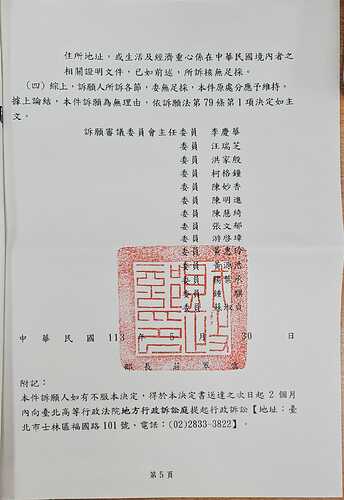 住所地址，或生活及經濟重心係在中華民國境內者之
相關證明文件，已如前述，所訴核無足採。
（四）綜上，訴願人所訴各節，委無足採，本件原處分應予維持。
據上論結，本件訴願為無理由，依訴願法第79條第1項決定如主
文。
訴願審議委員會主任委員　李慶華
委員　汪瑞芝
委員　洪家殷
委員　柯格鐘
委員　陳妙香
委員　陳明進
委員　陳慧綺
委員　張文郁
委員　游啓璋
委員
委員
委員
委員
委員
中華民國 113 年 5 月 30 日
部長 莊翠雲
附記：
本件訴願人如有不服本決定，得於本決定書送達之次日起 2 個月
內向臺北高等行政法院地方行政訴訟庭提起行政訴訟【地址：臺
北市士林區福國路 101 號，電話：(02)2833-3822】。
第 5 頁